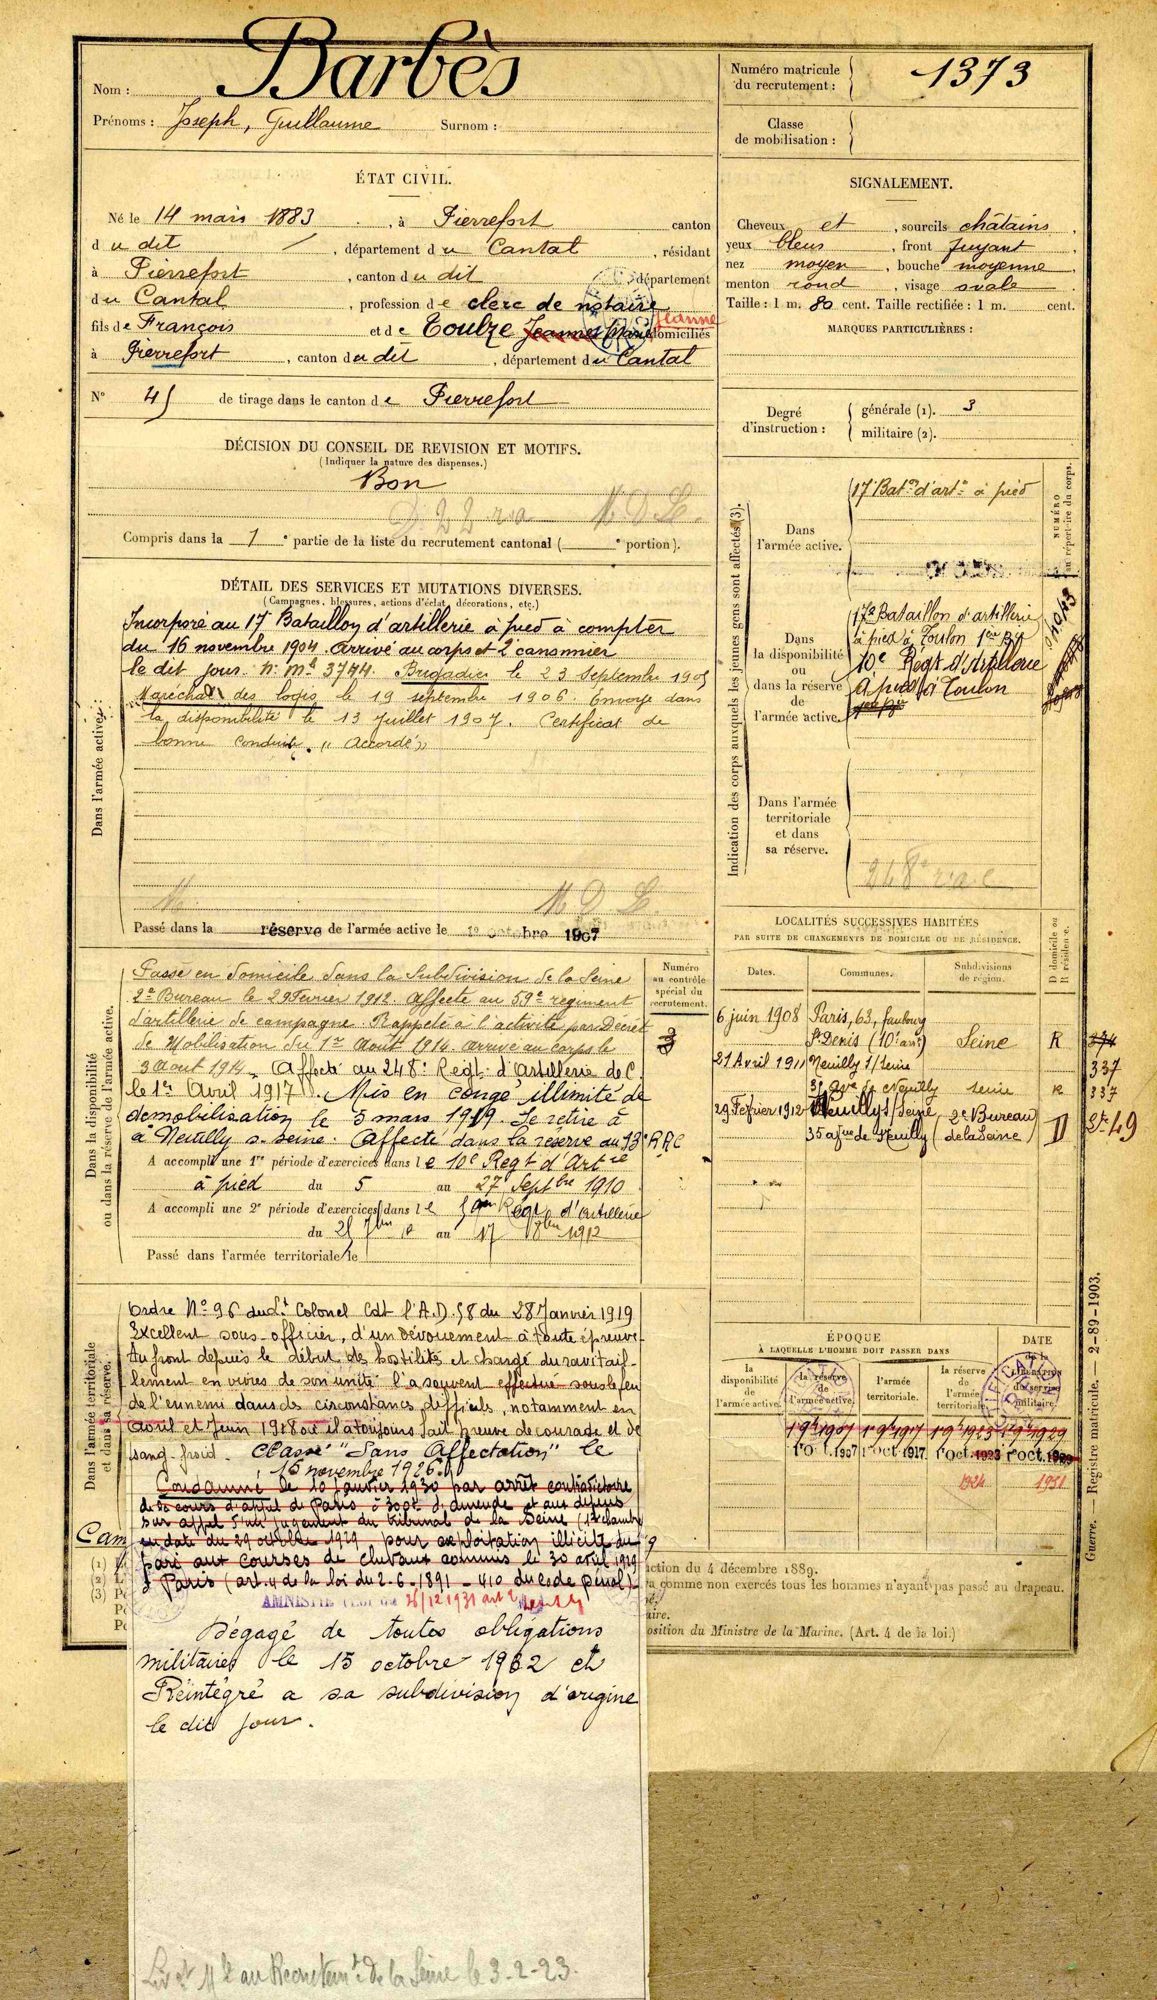 Nom : Barbès
Prénoms : Joseph, Guillaume Surnom :
Numéro matricule du recrutement : 1373
Classe de mobilisation :
ÉTAT CIVIL.
Né le 14 mars 1883, à Pierrefort canton
du dit, département du Cantal, résidant
à Pierrefort, canton du dit département
du Cantal, profession de clerc de notaire
fils de François et de Toulze Jeanne Marie domiciliés
à Pierrefort, canton du dit, département du Cantal
N° 45 de tirage dans le canton de Pierrefort
DÉCISION DU CONSEIL DE REVISION ET MOTIFS.
(Indiquer la nature des dispenses.)
Bon
M D L
Compris dans la 1e partie de la liste du recrutement cantonal ( e portion).
SIGNALEMENT.
Cheveux et, sourcils châtains,
yeux bleus, front fuyant
nez moyen, bouche moyenne,
menton rond, visage ovale
Taille : 1 m. 80 cent. Taille rectifiée : 1 m. cent.
MARQUES PARTICULIÈRES :
Degré d'instruction : générale (1). 3
militaire (2).
DÉTAIL DES SERVICES ET MUTATIONS DIVERSES.
(Campagnes, blessures, actions d'éclat, décorations, etc.)
Dans l'armée active :
Incorporé au 17e Bataillon d'artillerie à pied à compter
du 16 novembre 1904. Arrivé au corps et 2e canonnier
le dit jour. N° Mle 3744. Brigadier le 23 Septembre 1905
Maréchal des logis le 19 septembre 1906. Envoyé dans
la disponibilité le 13 Juillet 1907. Certificat de
bonne conduite "Accordé"
M D L
Passé dans la réserve de l'armée active le 1e octobre 1907
Indication des corps auxquels les jeunes gens sont affectés (3).
NUMÉRO au répertoire du corps.
Dans l'armée active.
17e Baton d'artie à pied
Dans la disponibilité ou dans la réserve de l'armée active.
17e Bataillon d'artillerie
à pied à Toulon 1ère Bie
10e Régt d'artillerie
à pied à Toulon
Dans l'armée territoriale et dans sa réserve.
248e r.a.c
Dans la disponibilité ou dans la réserve de l'armée active.
Numéro au contrôle spécial du recrutement.
3
Passé en domicile dans la Subdivision de la Seine
2e Bureau le 29 Février 1912. Affecté au 59e régiment
d'artillerie de campagne. Rappelé à l'activité par Décret
de Mobilisation du 1er Août 1914. Arrivé au corps le
3 Août 1914. Affecté au 248e Regt d'Artillerie de C.
le 1er Avril 1917. Mis en congé illimité de
démobilisation le 5 mars 1919. Se retire à
à Neuilly s. Seine. Affecté dans la réserve au 13e R.A.C
A accompli une 1re période d'exercices dans le 10e Regt d'Artie
à pied du 5 au 27 Septbre 1910
A accompli une 2e période d'exercices dans le 59e Regt d'artillerie
du 25 7bre au 17 8bre 1912
Passé dans l'armée territoriale le
LOCALITÉS SUCCESSIVES HABITÉES
PAR SUITE DE CHANGEMENTS DE DOMICILE OU DE RÉSIDENCE.
Dates. Communes. Subdivisions de région. D domicile ou R résidence.
6 juin 1908 Paris, 63, faubourg
St Denis (10e arrt) Seine R 374
337
21 Avril 1911 Neuilly s/Seine
35 Ave de Neuilly Seine R 337
29 Février 1912 Neuilly s/Seine 2e Bureau
35 ave de Neuilly de la Seine D 49
ÉPOQUE
À LAQUELLE L'HOMME DOIT PASSER DANS
DATE de la libération du service militaire.
la disponibilité de l'armée active.
la réserve de l'armée active.
l'armée territoriale.
la réserve de l'armée territoriale.
1er 8bre 1907 1er 8bre 1917 1er 8bre 1923 1er 8bre 1929
1er oct. 1907 1er oct. 1917. 1er oct. 1923 1er oct. 1929
1924 1931
Dans l'armée territoriale et dans sa réserve.
Ordre N° 96 du Lt Colonel Cdt l'A.D. 58 du 28 Janvier 1919
Excellent sous-officier, d'un dévouement à toute épreuve.
Au front depuis le début des hostilités et chargé du ravitail-
lement en vivres de son unité l'a souvent effectué sous le feu
de l'ennemi dans des circonstances difficiles, notamment en
avril et Juin 1918 où il a toujours fait preuve de courage et de
sang-froid. Classé "Sans Affectation" le
15 novembre 1926.
Condamné le 10 janvier 1930 par arrêt contradictoire
de la cours d'appel de Paris à 300f d'amende et aux dépens
sur appel d'un jugement du tribunal de la Seine (12e chambre)
en date du 29 octobre 1929 pour exploitation illicite du
pari aux courses de chevaux commis le 30 avril 1929
à Paris (art. 4 de la loi du 2-6-1891 - 410 du code pénal)
AMNISTIE 26/12/1931 art 2
Dégagé de toutes obligations
militaires le 15 octobre 1932 et
Réintégré a sa subdivision d'origine
le dit jour.
Cam
(1)
(2)
(3)
ction du 4 décembre 1889.
comme non exercés tous les hommes n'ayant pas passé au drapeau.
osition du Ministre de la Marine. (Art. 4 de la loi.)
Guerre. — Registre matricule. — 2-89-1903.
Livret Mle au Recrutemt de la Seine le 3-2-23.